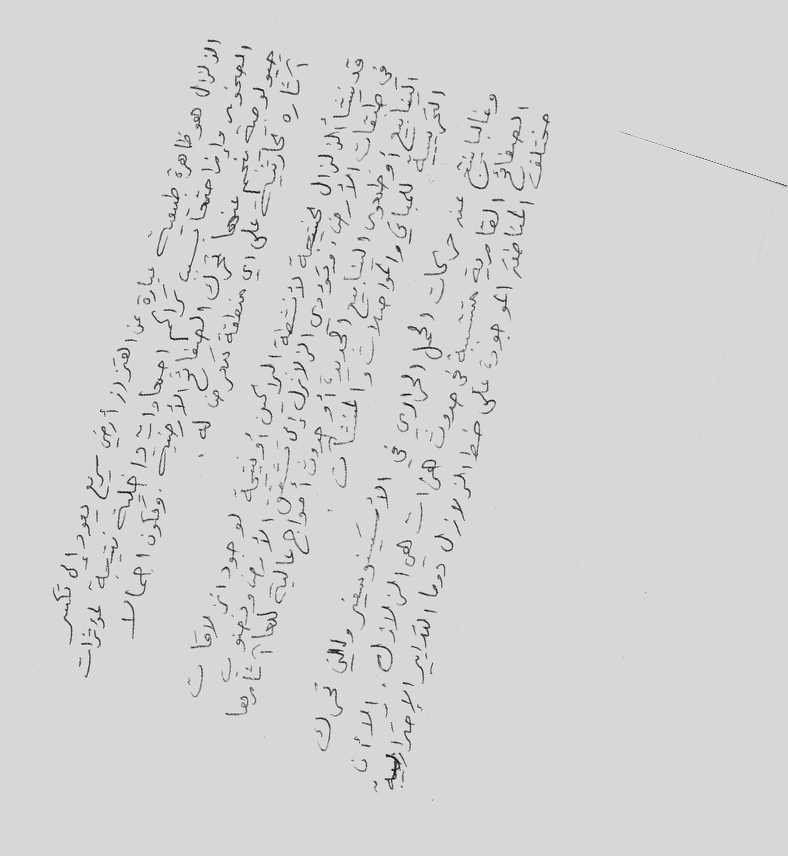 الزلزال هو ظاهرة طبيعية عبارة عن اهتزاز أرضي سريع يعود إلى تكسر
الصخور وإزاحتها بسبب تراكم اجهادات داخلية نتيجة لمؤثرات
جيولوجية ينجم عنها تحرك الصفائح الأرضية. وتكون اجمالا
آثاره كارثية على أي منطقة تتعرض له.
قد ينشأ الزلزال كنتيجة لأنشطة البراكين أو نتيجة لوجود انزلاقات
في طبقات الأرض، وتؤدي الزلازل إلى تشقق الأرض ونضوب
الينابيع أو ظهور الينابيع الجديدة أو حدوث أمواج عالية لها آثارها
التخريبية للمباني والمواصلات والمنشآت.
وغالبا ينتج عنه حركات الحمل الحراري في الأسينوسفير والتي تحرك
الصفائح القارية متسببة في حدوث هزات هي الزلازل. إلا أن
مختلف المناطق الموجودة على خط الزلازل تدعم التدابير الإحترازية